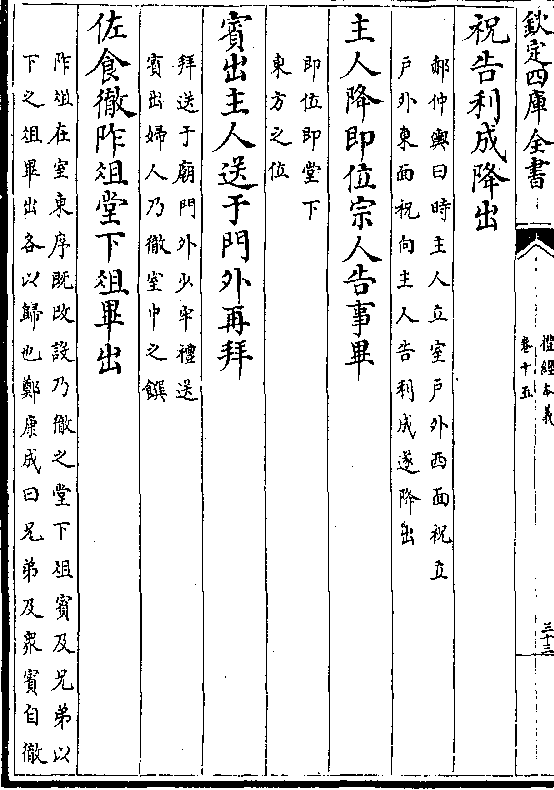 欽定四庫全書
禮經本義
卷十五
三十三
祝告利成降出
郝仲輿曰時主人立室戶外西面祝立
戶外東面祝向主人告利成遂降出
主人降即位宗人告事畢
即位即堂下
東方之位
賓出主人送于門外再拜
拜送于廟門外少牢禮送
賓出婦人乃徹室中之饌
佐食徹阼俎堂下俎畢出
阼俎在室東序既改設乃徹之堂下俎賓及兄弟以
下之俎畢出各以歸也鄭康成曰兄弟及衆賓自徹